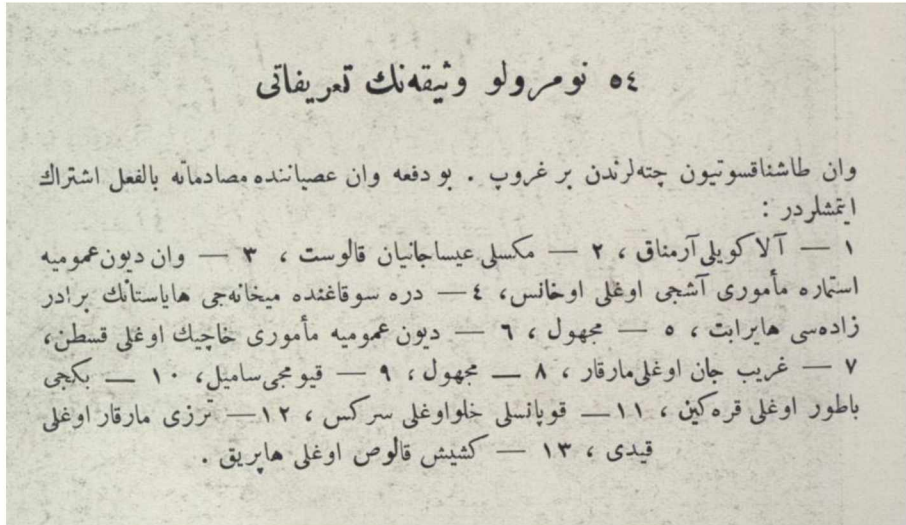 ٥٤ نومرولو وثیقه‌نك تعریفاتی
وان طاشناقسوتیون چته‌لرندن بر غروپ . بو دفعه وان عصیاننده مصادماته بالفعل اشتراك
ایتمشلردر :
١ — آلا کویلی آرمناق ، ٢ — مکسلی عیساجانیان قالوست ، ٣ — وان دیون عمومیه
استماره مأموری آشجی اوغلی اوخانس، ٤ — دره سوقاغنده میخانه‌جی هایاستانك برادر
زاده‌سی هایرابت ، ٥ — مجهول ، ٦ — دیون عمومیه مأموری خاچیك اوغلی قسطن،
٧ — غریب جان اوغلی مارقار ، ٨ — مجهول ، ٩ — قیومجی سامیل، ١٠ — بکجی
باطور اوغلی قره‌کین ، ١١ — قوپانسلی خلواوغلی سرکس ، ١٢ — ترزی مارقار اوغلی
قیدی ، ١٣ — کشیش قالوص اوغلی هاپریق .